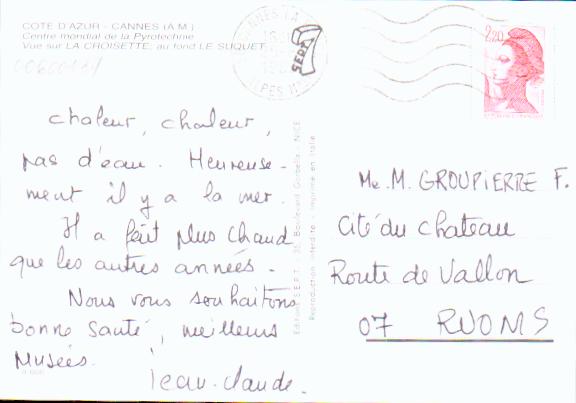 COTE D'AZUR - CANNES (A.M.)
Centre mondial de la Pyrotechnie
Vue sur LA CROISETTE, au fond LE SUQUET
CANNES
SEPT
2,20
chaleur, chaleur,
pas d'eau. Heureuse-
ment il y a la mer.
Il a fait plus chaud
que les autres années.
Nous vous souhaitons
bonne santé, meilleurs
Musées.
Jean-Claude.
Editions S.E.P.T. - 35, Boulevard - NICE
Reproduction interdite - imprimé en Italie
Me. M. GROUPIERRE F.
Cité du chateau
Route de Vallon
07 RUOMS